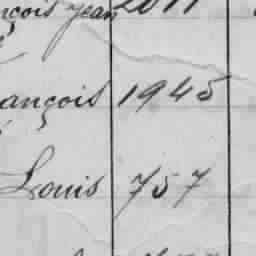 nçois Jean 2011
ançois 1945
Louis 757